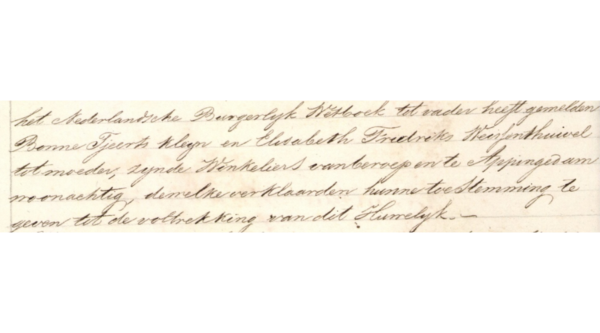 het Nederlandsche Burgerlyk Wetboek tot vader heeft gemelden
Bonne Tjeerts Kleyn en Elisabeth Fredriks
tot moeder, zynde Winkeliers van beroep en te Appingedam
woonachtig, dewelke verklaarden hunne toestemming te
geven tot de voltrekking van dit Huwelyk.—